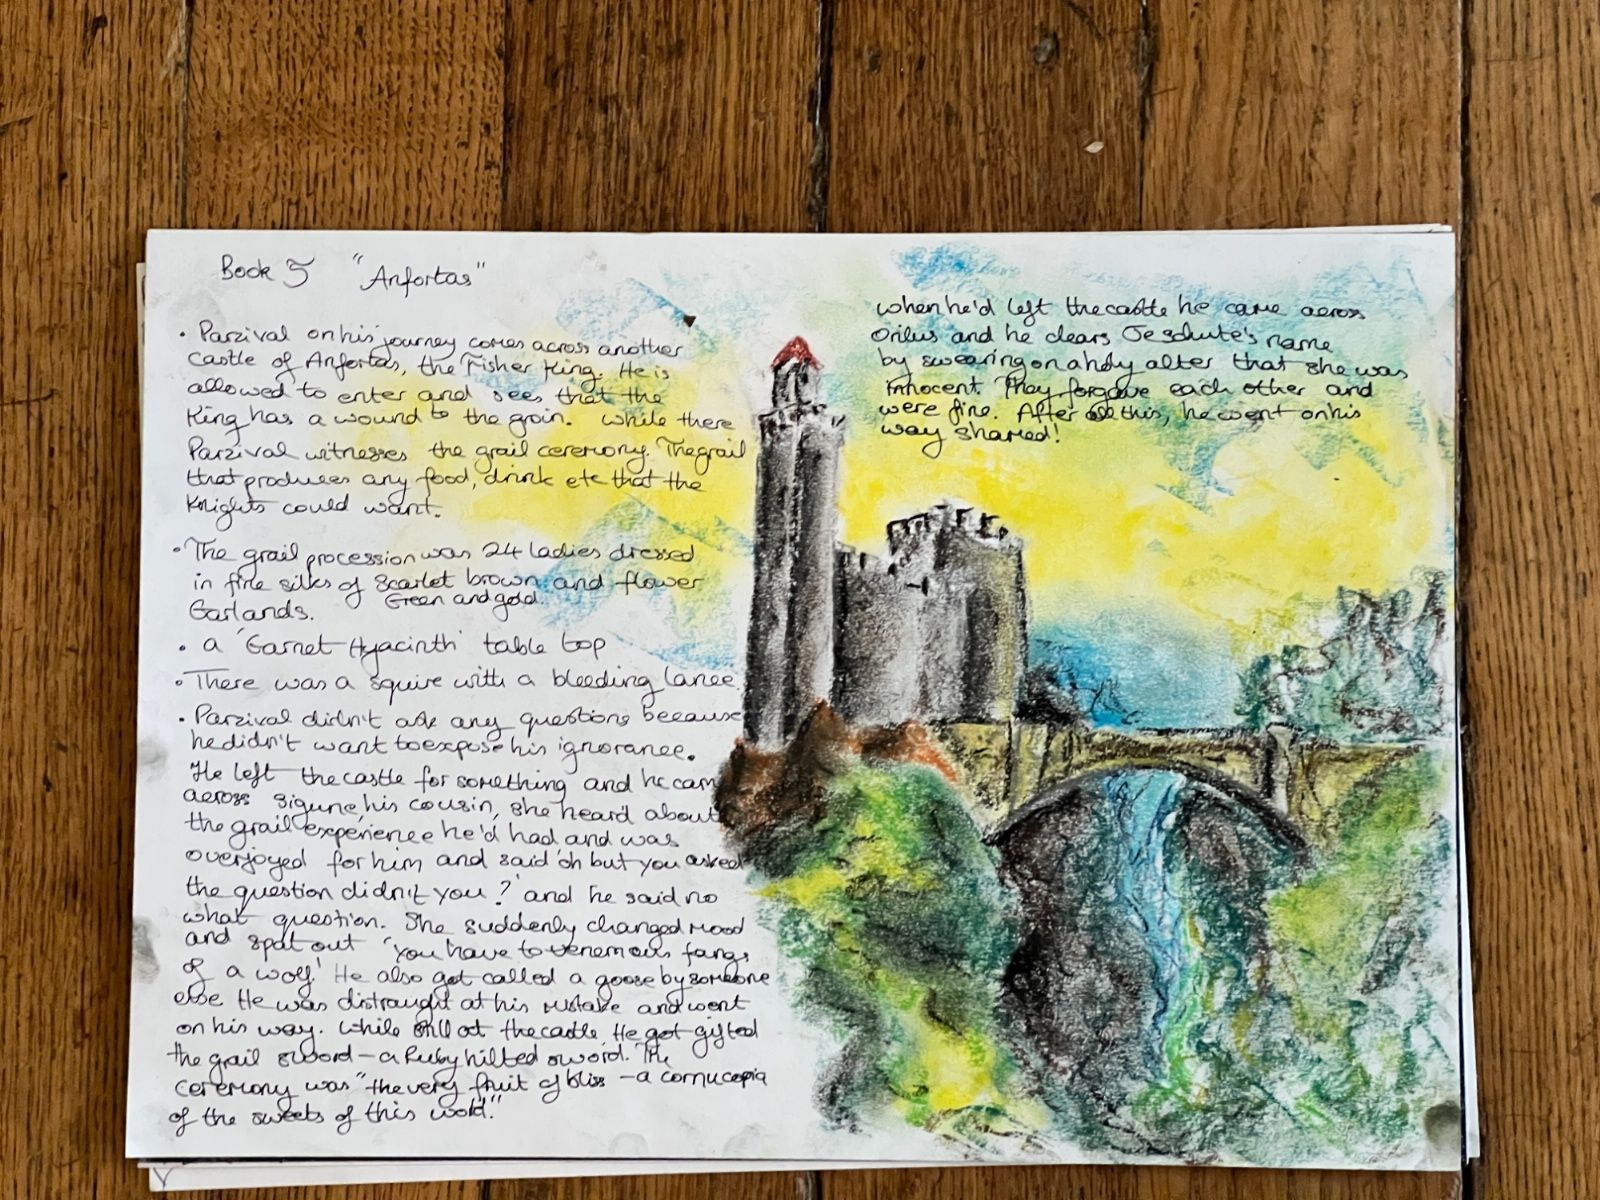 Book 5 "Anfortas"
• Parzival on his journey comes across another
Castle of Anfortas, the Fisher King. He is
allowed to enter and sees that the
King has a wound to the groin. While there
Parzival witnesses the grail ceremony. The grail
that produces any food, drink etc that the
Knights could want.
• The grail procession was 24 ladies dressed
in fine silks of Scarlet brown and flower
Green and gold.
Garlands.
• a 'Garnet Hyacinth' table top
• There was a squire with a bleeding lance.
• Parzival didn't ask any questions because
he didn't want to expose his ignorance.
He left the castle for something and he cam
across Sigune, his cousin, she heard about
the grail experience he'd had and was
overjoyed for him and said 'oh but you asked
the question didn't you?' and he said no
what question. She suddenly changed mood
and spat out 'you have to venemous fangs
of a wolf' He also got called a goose by someone
else He was distraught at his mistake and went
on his way. While still at the castle, He got gifted
the grail sword - a Ruby hilted sword. The
ceremony was "the very fruit of bliss - a cornucopia
of the sweets of this world."
when he'd left the castle he came across
Orilus and he clears Jeschute's name
by swearing on a holy alter that she was
innocent. They forgave each other and
were fine. After all this, he went on his
way shamed!